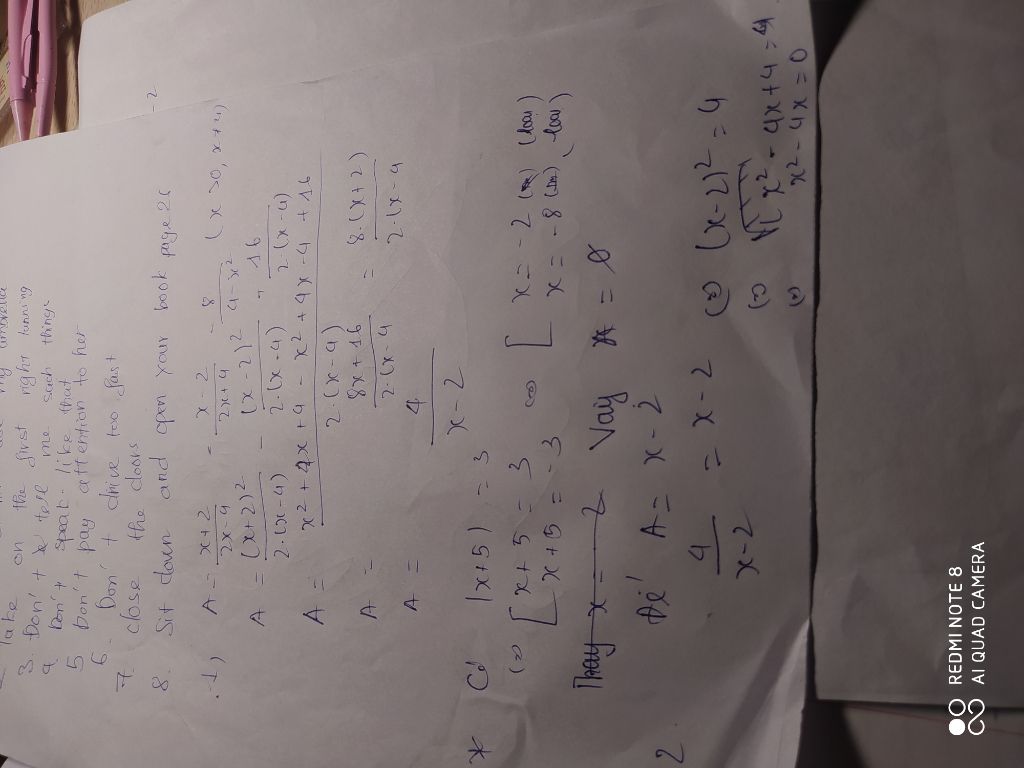 3. Don't on the first right turning
4 Don't tell me such things
5 Don't speak like that
6 - Don't pay attention to her
7. Don't drive too fast
close the doors
8. Sit down and open your book page 2
.1) A = x+2/2x-4 - x-2/2x+4 - 8/4-x² (x >0, x≠4)
A = (x+2)²/2.(x-4) - (x-2)²/2.(x-4) + 16/2.(x-4)
A = x²+4x+4 - x²+4x-4+16/2.(x-4)
A = 8x+16/2.(x-4) = 8.(x+2)/2.(x-4
A = 4/x-2
* Có |x+5| = 3
(=) [ x+5 = 3 (=) [ x = -2 (loại)
x+5 = -3 x = -8 (loại)
Thay x = 2 Vậy x = ∅
2 Để A = x-2
4/x-2 = x-2 (=) (x-2)² = 4
(=) x² - 4x+4 = 4
(=) x² - 4x = 0
REDMI NOTE 8
AI QUAD CAMERA